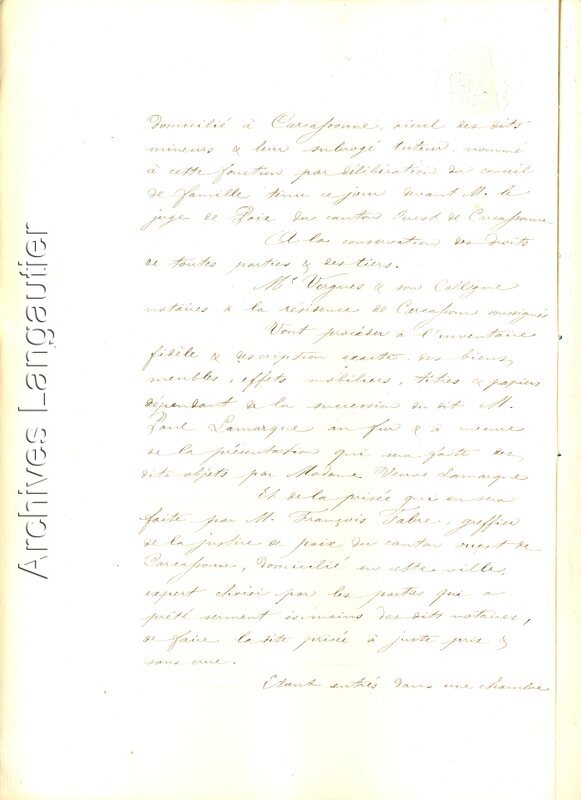 domicilié à Carcassonne, aieul des dits
mineurs & leur subrogé tuteur, nommé
à cette fonction par délibération du conseil
de famille tenu ce jour devant M. le
juge de Paix du canton Ouest de Carcassonne
A la conservation des droits
de toutes parties & des tiers.
Me Vergues & son Collègue
notaires à la résidence de Carcassonne soussignés
Vont procéder à l'inventaire
fidèle & description exacte des biens,
meubles, effets mobiliers, titres & papiers
dépendant de la succession du dit M.
Paul Lamarque au fur & à mesure
de la présentation qui sera faite des
dits objets par Madame Veuve Lamarque
Et de la prisée qui en sera
faite par M. François Fabre, greffier
de la justice de paix du canton ouest de
Carcassonne, domicilié en cette ville,
expert choisi par les parties qui a
prêté serment ès-mains des dits notaires,
de faire la dite prisée à juste prix &
sans crue.
Etant entrés dans une chambre
Archives Langautier